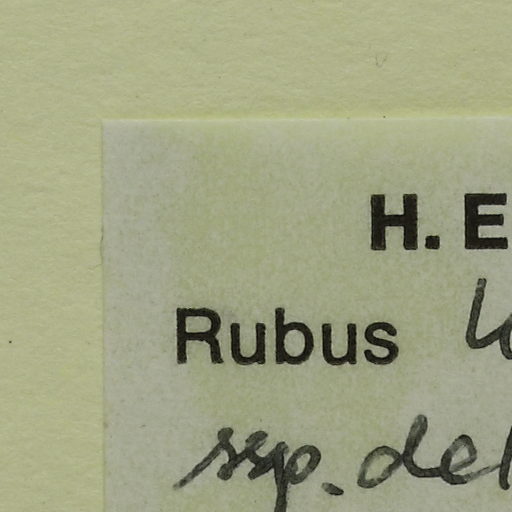 H. E
Rubus
ssp. del